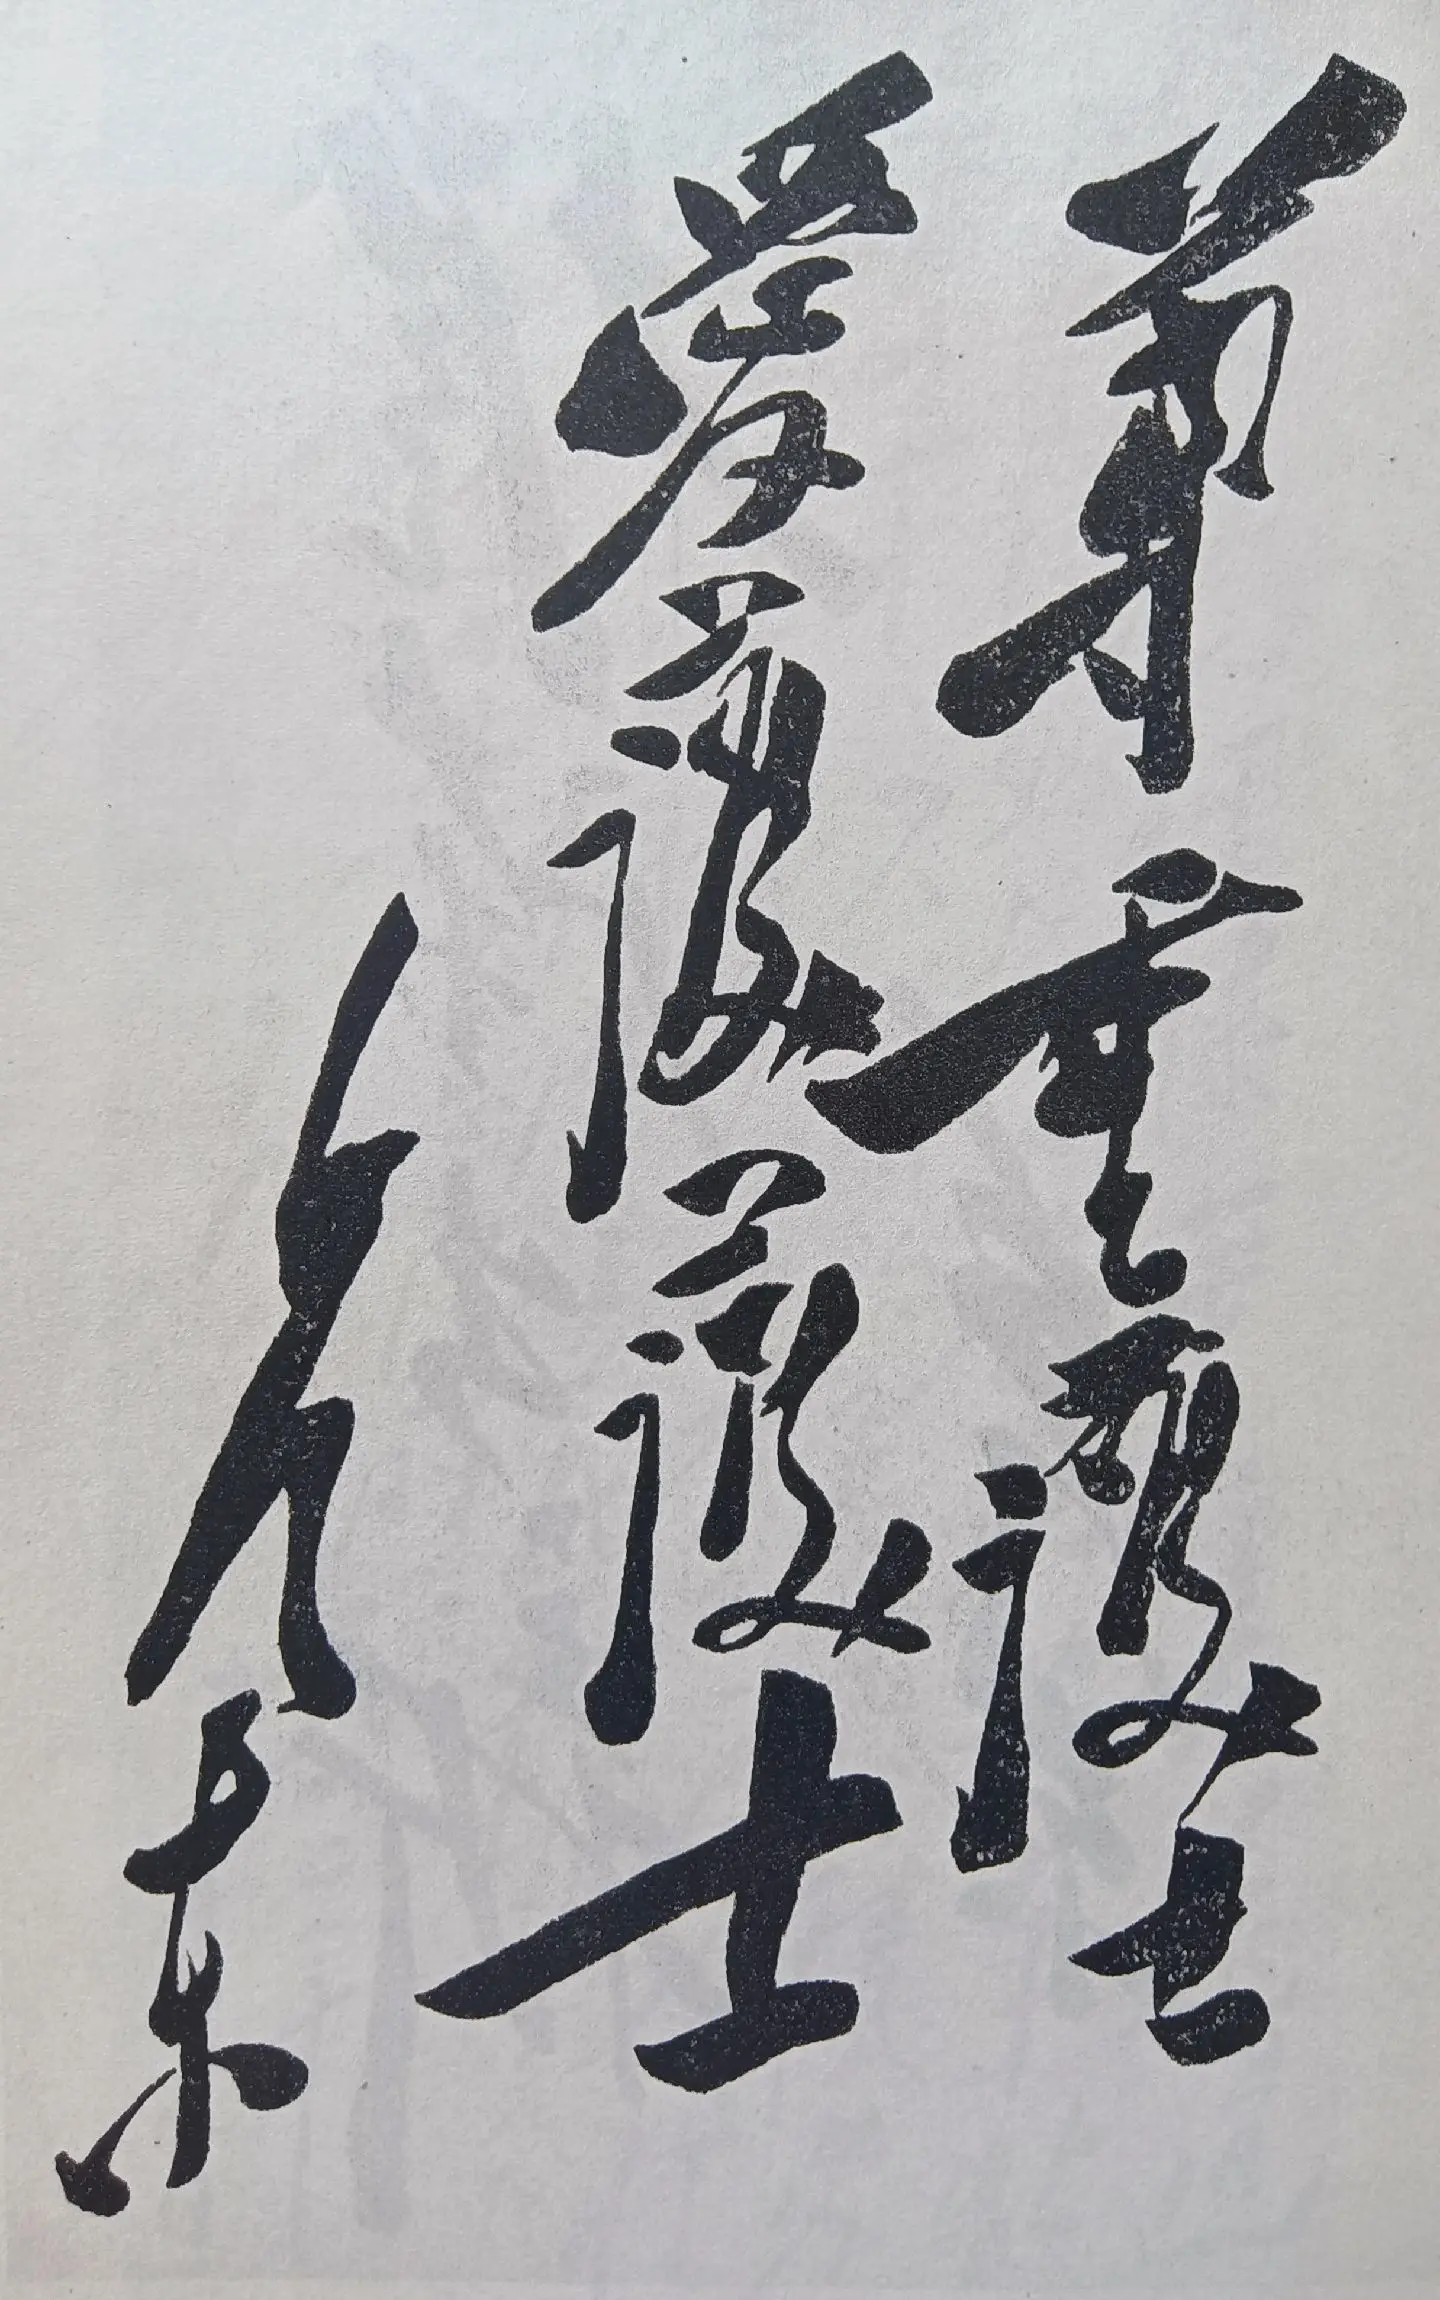 尊重護士
愛護護士
毛澤東